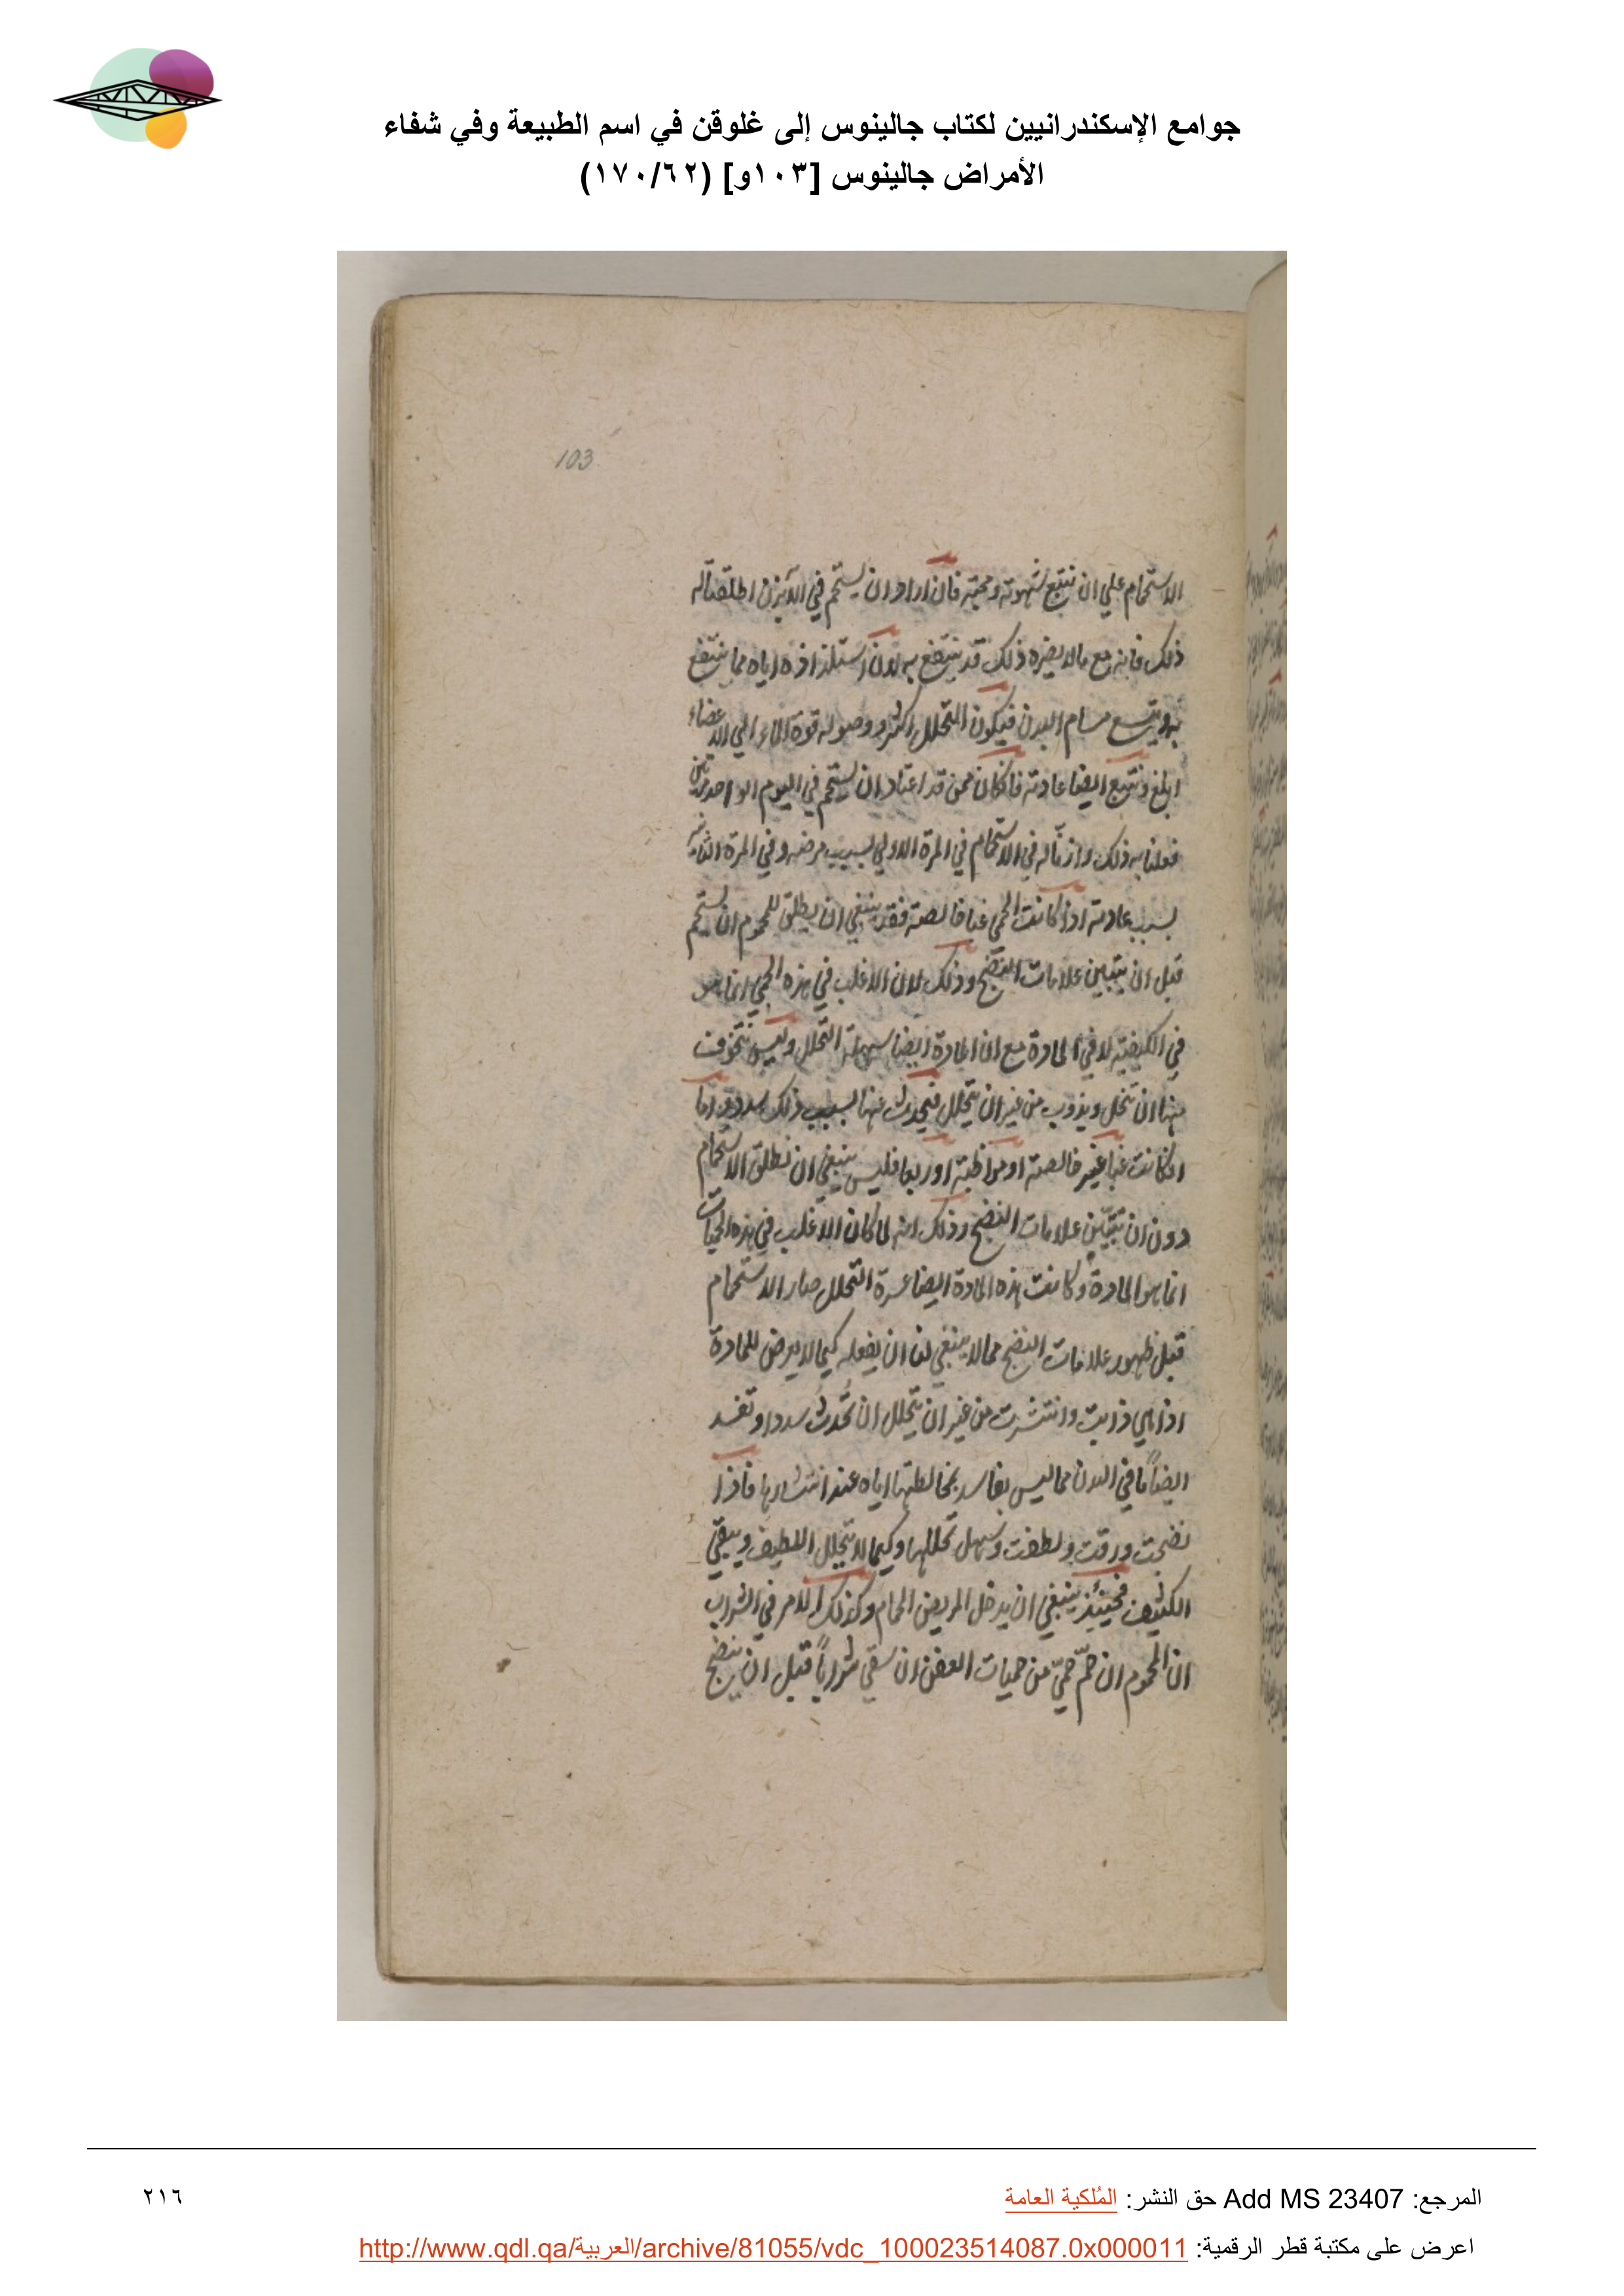 جوامع الإسكندرانيين لكتاب جالينوس إلى غلوقن في اسم الطبيعة وفي شفاء
الأمراض جالينوس [١٠٣و] (١٧٠/٦٢)
103
الاستحمام علي ان نتبع شهوته ومحبته فان اراد ان يستحم في الآبزن اطلقنا له
ذلك فانه مع مالا يضره ذلك قد ينتفع به لان استلذاذه اياه مما ينتفع
به ويتسع مسام البدن فيكون التحلل اكثر ووصوله قوة الماء الي الاعضاء
ابلغ ونتبع ايضا عادته فانكان ممن قد اعتاد ان يستحم في اليوم الواحد مرتين
فعلنا به ذلك واذنا له في الاستحمام في المرة الاولي بسبب مرضه وفي المرة الثانية
بسبب عادته اذا كانت الحمي غبا خالصة فقد ينبغي ان يطلق للمحموم ان يستحم
قبل ان يتبين علامات النضج وذلك لان الاغلب في هذه الحمي انما هو
في الكيفية لا في المادة مع ان المادة ايضا سهلة التحلل وليس نتخوف
منها ان تنحل ويذوب من غير ان يتحلل فيحدث عنها بسبب ذلك سدد واما
انكانت غبا غير خالصة او مواظبة او ربعا فليس ينبغي ان نطلق الاستحمام
دون ان تتبين علامات النضج وذلك انه لما كان الاغلب في هذه الحميات
انما هو المادة وكانت هذه المادة ايضا عسرة التحلل صار الاستحمام
قبل ظهور علامات النضج مما لا ينبغي لنا ان يفعله كيما لا يعرض للمادة
اذا هي ذابت وانتشرت من غير ان يتحلل ان تحدث سددا وتفسد
ايضاً ما في البدن مما ليس بفاسد بمخالطتها اياه عند انتشارها فاذا
نضجت ورقت ولطفت وسهل تحللها وكيما لا يتحلل اللطيف ويبقي
الكثيف فحينئذ ينبغي ان يدخل المريض الحمام وكذلك الامر في الشراب
ان المحموم ان حمّ حميّ من حميات العفن ان سقي شراباً قبل ان ينضج
المرجع: Add MS 23407 حق النشر: المُلكية العامة
٢١٦
اعرض على مكتبة قطر الرقمية: http://www.qdl.qa/العربية/archive/81055/vdc_100023514087.0x000011